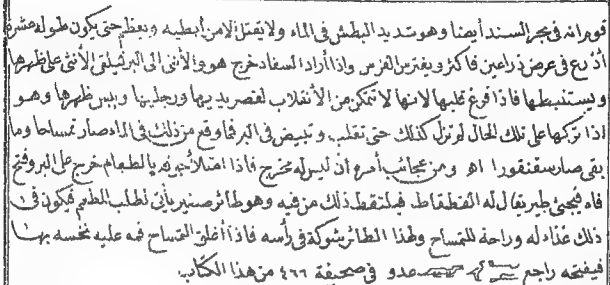 قوم انه فى بحر السند أيضا وهو شديد البطش فى الماء ولا يقتل الا من أبطيه ويعظم حتى يكون طوله عشرة
أذرع فى عرض ذراعين فاكثر ويفترس الفرس واذا أراد السفاد خرج هو والأنثى الى البر فيلقى الأنثى على ظهرها
ويستنبطها فاذا فرغ قلبها لانها لا تتمكن من الأنقلاب لقصر يديها ورجليها ويبس ظهرها وهو
اذا تركها على تلك الحال لم تزل كذلك حتى تقلب وتبيض فى البر فما وقع من ذلك فى الماء صار تمساحا وما
بقى صار سقنقورا اه ومن عجائب أمره ان ليس له مخرج فاذا امتلأ بالطعام خرج على البر وفتح
فاه فيجئ طير يقال له القطقاط فيلتقط ذلك من فيه وهو طائر صغير يأتى لطلب الطعم فيكون فى
ذلك غذاء له وراحة للتمساح ولهذا الطائر شوكة فى رأسه فاذا أغلق التمساح فمه عليه نخسه بها
فيفتحه راجع عدو فى صحيفة ٤٦٦ من هذا الكتاب